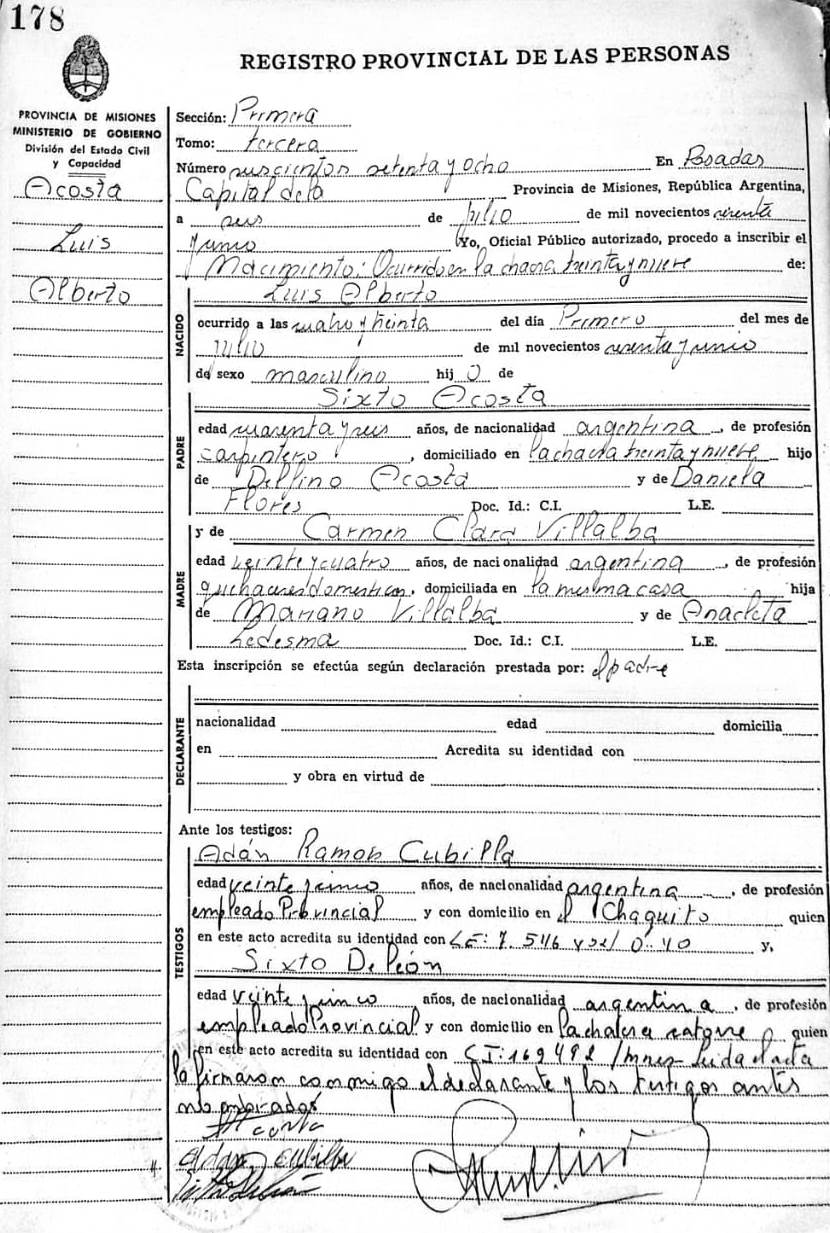 178
REGISTRO PROVINCIAL DE LAS PERSONAS
PROVINCIA DE MISIONES
MINISTERIO DE GOBIERNO
División del Estado Civil
y Capacidad
Acosta
Luis
Alberto
Sección: Primera
Tomo: tercera
Número seiscientos setenta y ocho En Posadas
Capital de la Provincia de Misiones, República Argentina,
a seis de julio de mil novecientos sesenta
y cinco Yo, Oficial Público autorizado, procedo a inscribir el
Nacimiento: Ocurrido en la chacra treinta y nueve de:
Luis Alberto
NACIDO
ocurrido a las cuatro y treinta del día Primero del mes de
julio de mil novecientos sesenta y cinco
de sexo masculino hij o de
Sixto Acosta
PADRE
edad cuarenta y seis años, de nacionalidad argentina, de profesión
carpintero, domiciliado en la chacra treinta y nueve hijo
de Delfino Acosta y de Daniela
Flores Doc. Id.: C.I. L.E.
y de Carmen Clara Villalba
MADRE
edad veinte y cuatro años, de nacionalidad argentina, de profesión
quehaceres domesticos, domiciliada en la misma casa hija
de Mariano Villalba y de Anacleta
Ledesma Doc. Id.: C.I. L.E.
Esta inscripción se efectúa según declaración prestada por: el padre
DECLARANTE
nacionalidad edad domicilia
en Acredita su identidad con
y obra en virtud de
Ante los testigos:
Adán Ramon Cubilla
TESTIGOS
edad veinte y cinco años, de nacionalidad argentina, de profesión
empleado Provincial y con domicilio en el Chaquito quien
en este acto acredita su identidad con LE: 7.546 y,
Sixto De León
edad veinte y cinco años, de nacionalidad argentina, de profesión
empleado Provincial y con domicilio en la chacra catorce quien
en este acto acredita su identidad con C.I: 169492 /Mnes Leida el acta
la firmaron conmigo el declarante y los testigos antes
nombrados
Acosta
Adan Cubilla